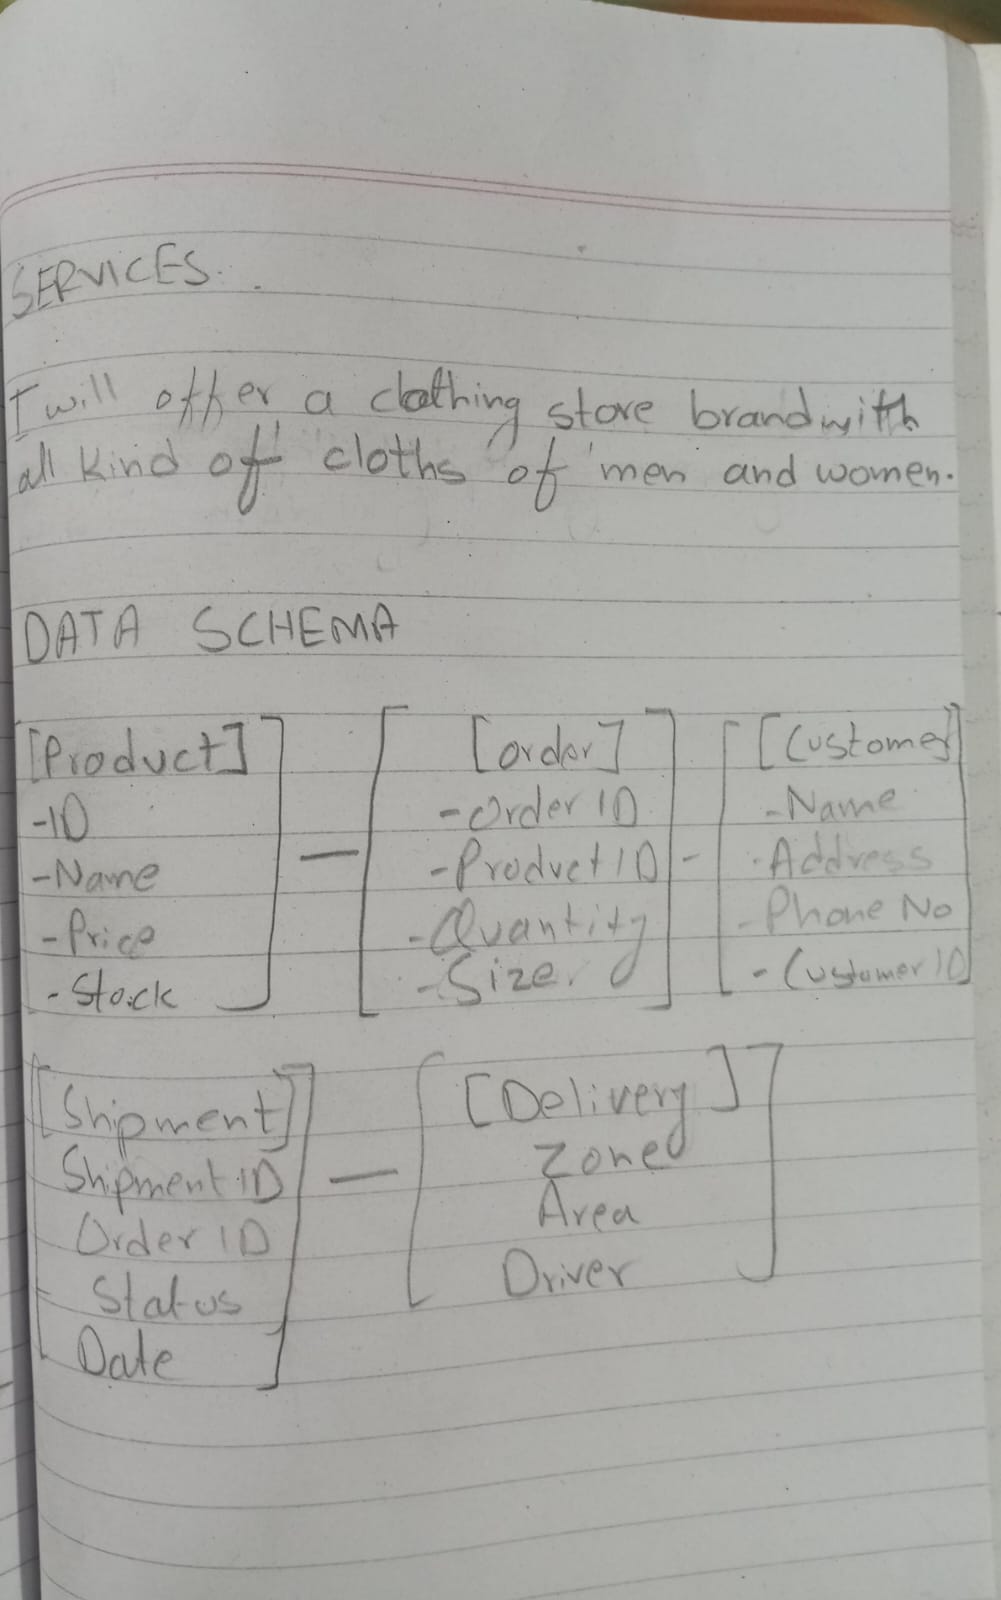 SERVICES.
I will offer a clothing store brand with
all kind of cloths of men and women.
DATA SCHEMA
[Product]
-ID
-Name
-Price
-Stock
[order]
-Order ID
-Product ID
-Quantity
-Size.
[Customer]
-Name
-Address
-Phone No
-Customer ID
[Shipment]
Shipment ID
Order ID
Status
Date
[Delivery]
Zone
Area
Driver